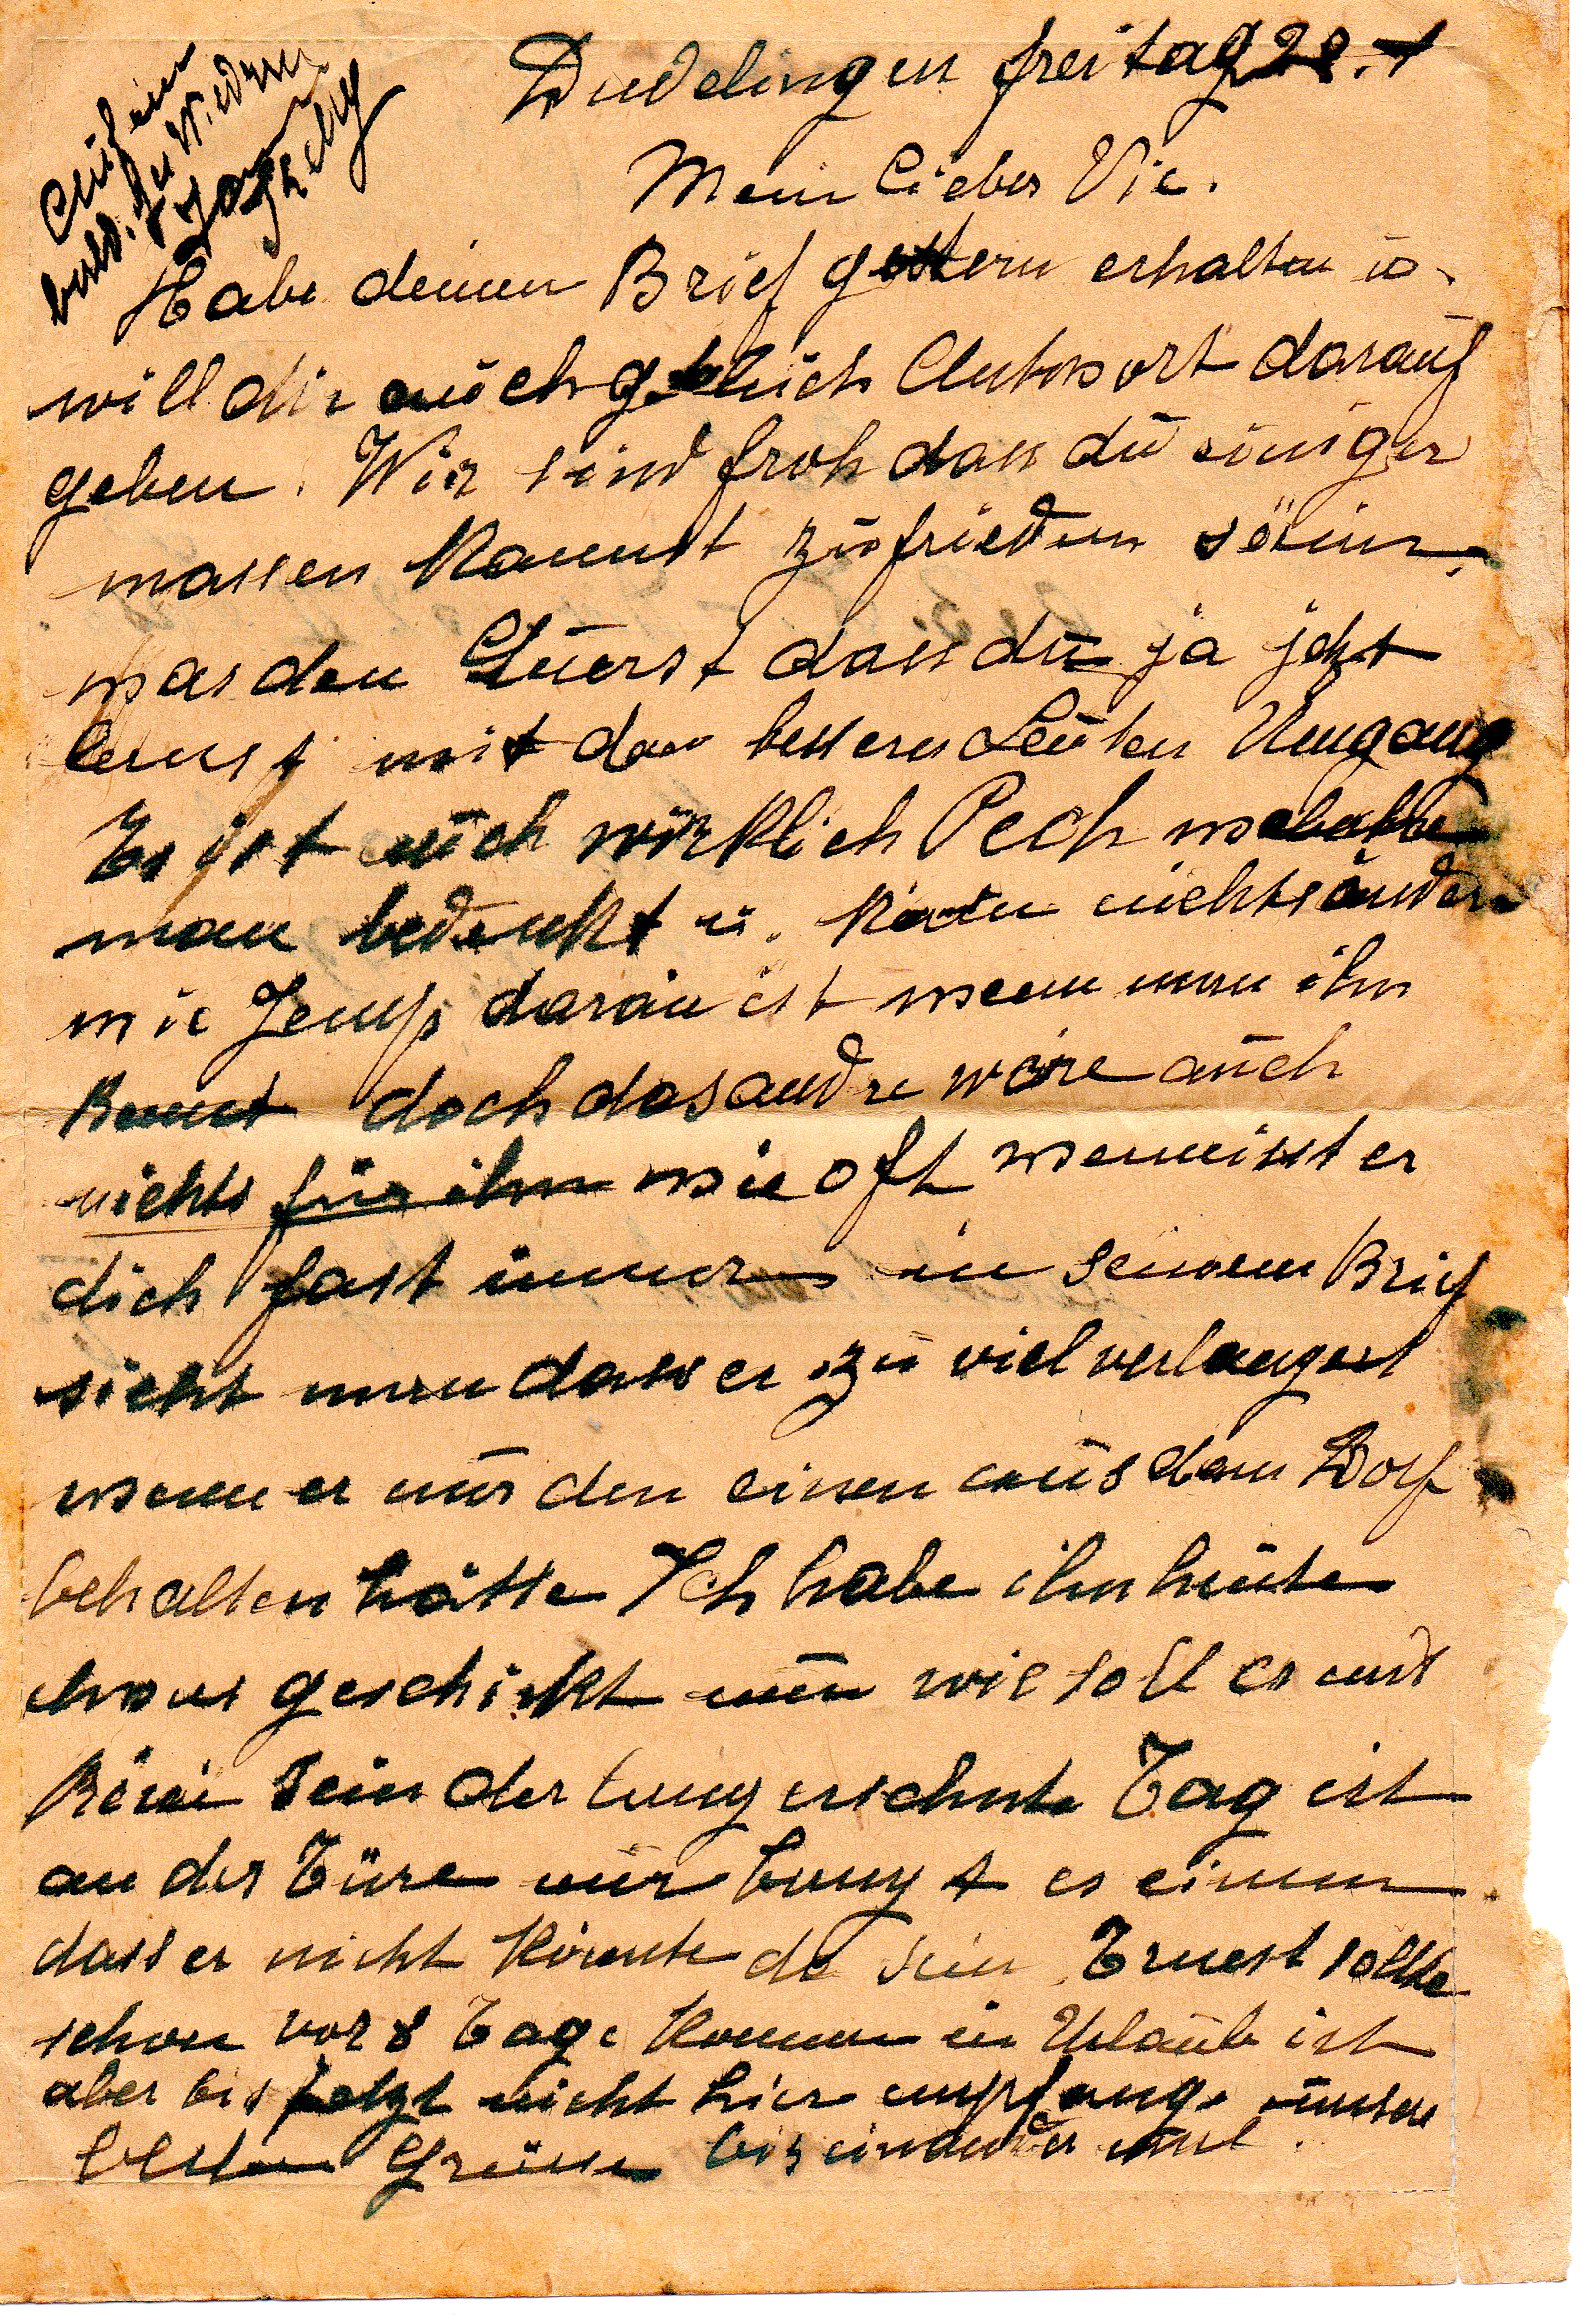 Dudelingen freitag 28.1
Mein lieber Vic.
Habe deinen Brief gestern erhalten ü.
will dir auch gleich Antwort darauf
geben. Wir sind froh dass dü einiger
massen kannst zufrieden sein.
was den dass dü ja jetzt
lernst mit den bessern Leuten Umgang
Es ist auch wirklich Pech
man bedenkt ü. kann nichts ändern
wie Jemp daran ist wenn man ihn
kennt doch das andre wäre auch
nichts für ihn wie oft er
dich fast immer in seinem Brief
sieht man dass er zu viel verlangert
wenn er nur den einen aus dem Dorf
behalten hätte Ich habe ihm heute
etwas geschickt nun wie soll es mit
sein der lang ersehnte Tag ist
an der Türe nur bangt es einem
dass er nicht könnte da sein Ernest sollte
schon vor 8 Tage kommen in Urlaub ist
aber bis jetzt nicht hier empfange unsere
besten Grüsse bis einander mal.
Auf ein
bald. Wiedersehn